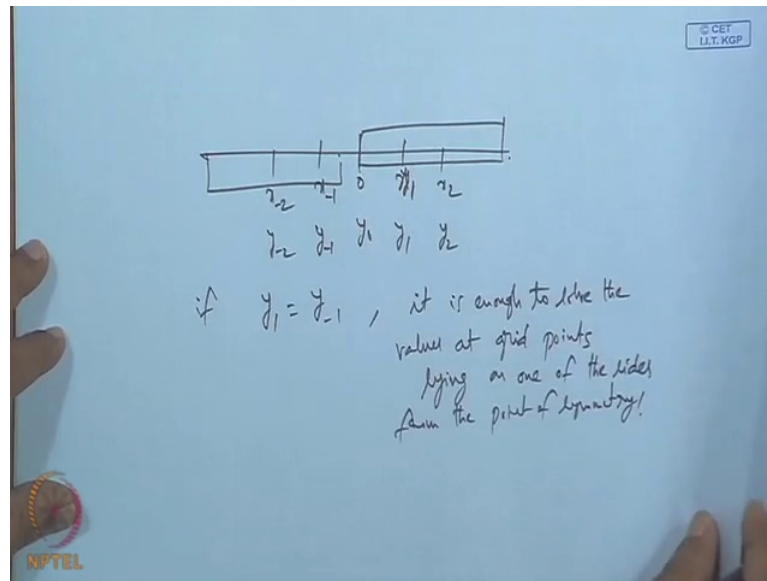 © CET
I.I.T. KGP
x₋₂ x₋₁ 0 x₁ x₂
y₋₂ y₋₁ y₀ y₁ y₂
if y₁ = y₋₁ , it is enough to solve the
values at grid points
lying on one of the sides
from the point of symmetry!
NPTEL